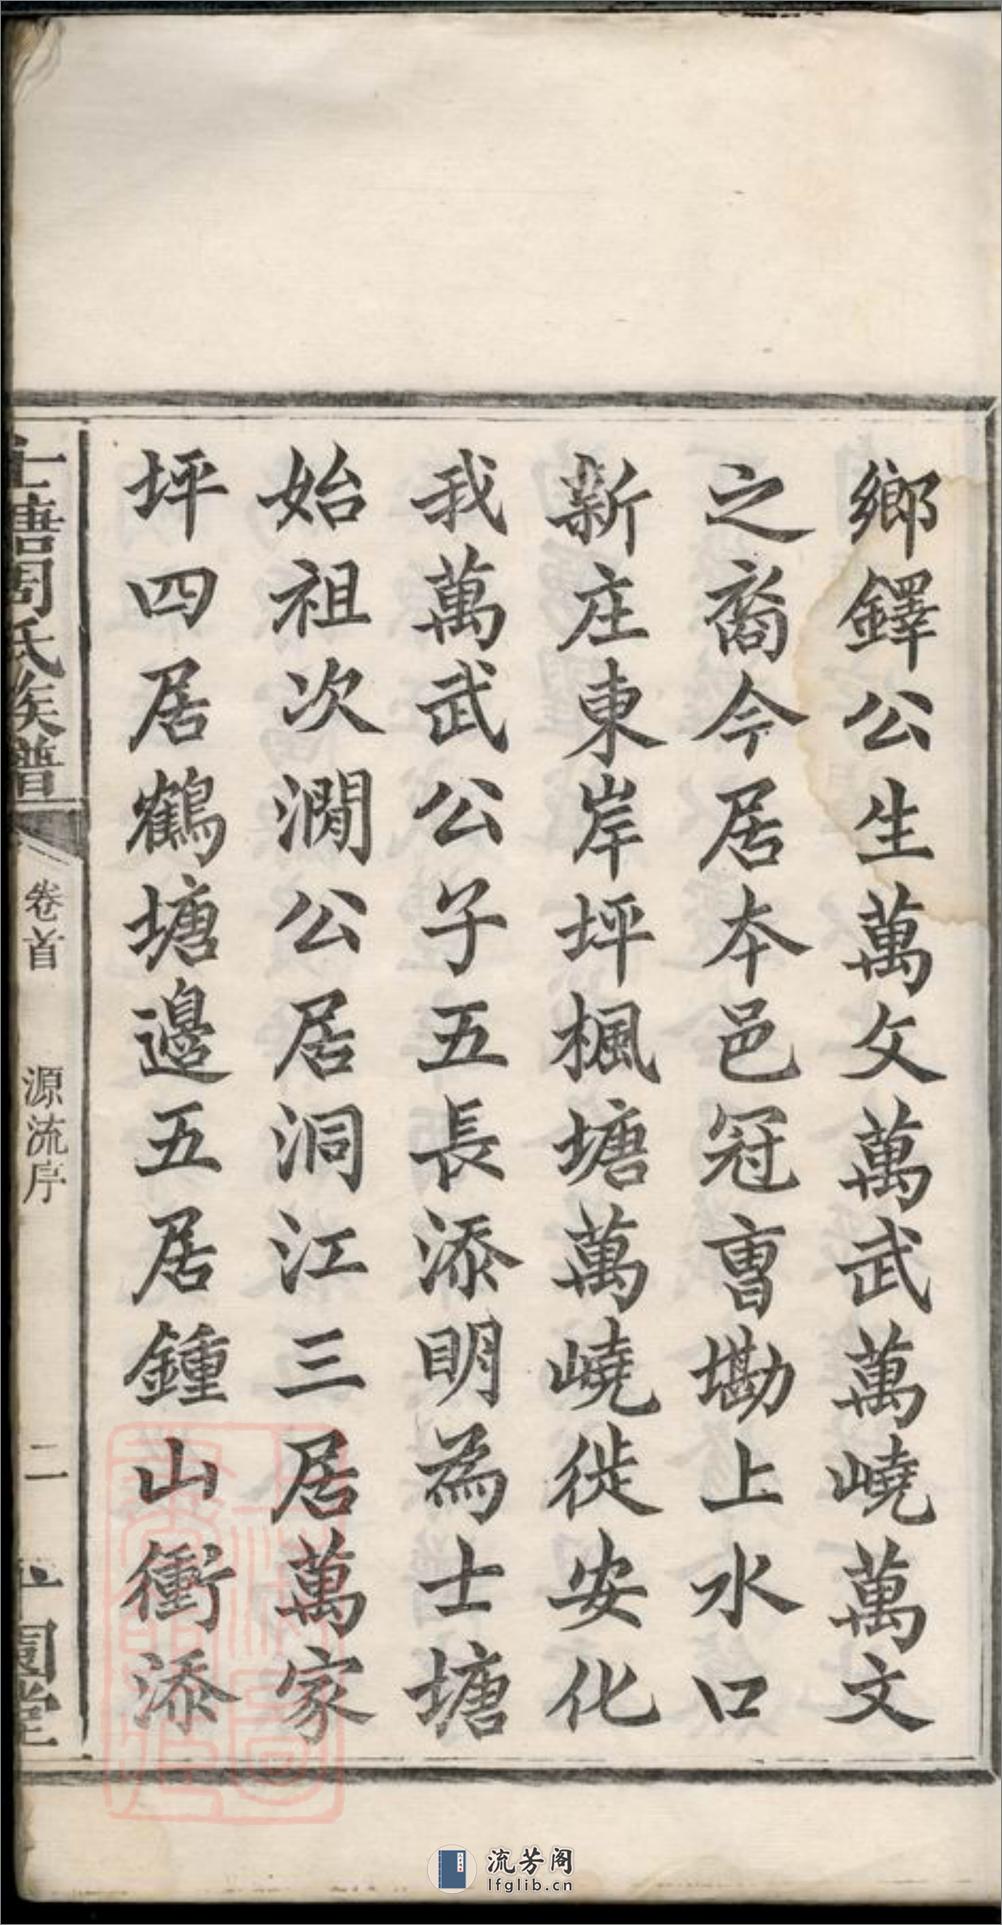 鄉鐸公生萬文萬武萬嶢萬文
之裔今居本邑冠曺墈上水口
新庄東岸坪楓塘萬嶢徙安化
我萬武公子五長添明為士塘
始祖次澗公居洞江三居萬家
坪四居鶴塘邉五居鍾山衝添
士塘周氏族譜
卷首
源流序
二
園堂
流芳阁
lfglib.cn